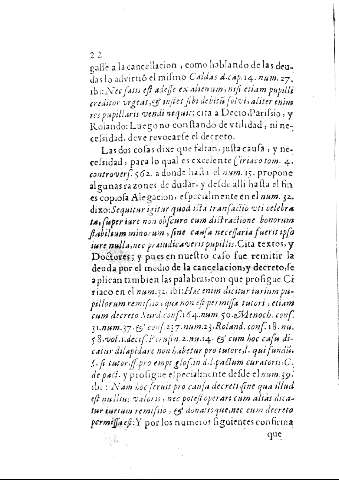 22
gasse a la cancellacion, como hablando de las deu-
das lo advirtiò el mismo Caldas d.cap. 14. num. 27.
ibi: Nec satis est adesse ex alienum, nisi etiam pupilli
creditor vrgeat, & instet sibi debitũ solvi, aliter enim
res pupillaris vendi nequit: cita a Decio, Parisio, y
Rolando: Luego no constando de vtilidad, ni ne-
cessidad, deve revocarse el decreto.
Las dos cosas dixe que faltan, justa causa, y ne-
cessidad; para lo qual es excelente Ciriaco tom. 4.
controvers. 562. a donde hasta el num. 15. propone
algunas razones de dudar, y desde alli hasta el fin
es copiosa Alegacion, especialmente en el num. 32.
dixo: Sequitur igitur quod ista transactio vti celebra
ta, super iure non obscuro cum distractione bonorum
stabilium minorum, sine causa necessaria fuerit ipso
iure nulla, nec praiudicaverit pupillis. Cita textos, y
Doctores; y pues en nuestro caso fue remitir la
deuda por el medio de la cancelacion, y decreto, se
aplican tambien las palabras con que prosigue Ci
riaco en el num. 32. ibi: Hac enim dicitur iurium pu-
pillorum remissio, qua non est permissa tutori, etiam
cum decreto Surd. cons. 164. num 50. Menoch. cons.
31. num. 37. & cons 237. num. 23. Roland. cons. 18. nu.
58. vol. 1. decis. Perusin. 2. nu. 14. & cum hoc casu di-
catur dilapidare non habetur pro tutore, l. qui fundũ,
§. si tutor ff. pro empt glos. in d. l. pactum curatoris C.
de pact. y prosigue especialmente desde el num. 39.
ibi: Nam hoc fecit pro causa decreti sine qua illud
est nullius valoris, nec potest operari cum alias dica-
tur iurium remissio, & donatio que, nec cum decreto
permissa est: Y por los numeros siguientes confirma
que